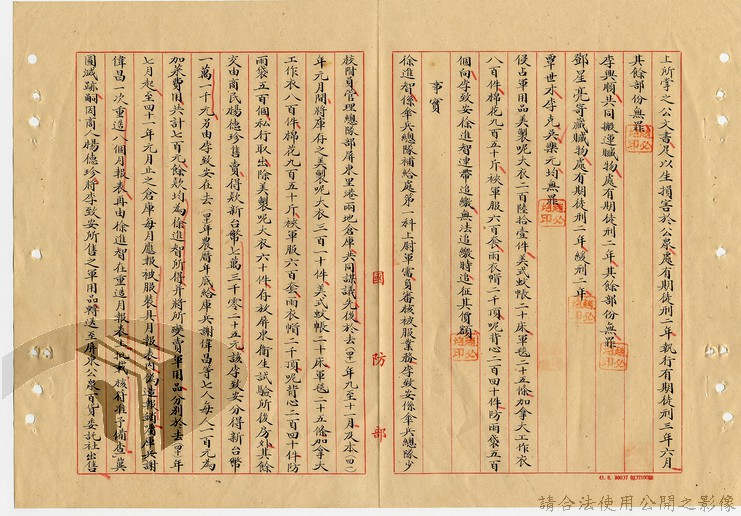 上所掌之公文書足以生損害於公衆處有期徒刑一年執行有期徒刑三年六月
其餘部份無罪
李興順共同搬運贓物處有期徒刑二年其餘部份無罪
鄧星亮寄藏贓物處有期徒刑二年緩刑二年
覃世才李克兵樂元均無罪
侵占軍用品美製呢大衣二百陸拾壹件美式蚊帳二十床軍毯二十五條加拿大工作衣
八百件棉花九百五十斤袂軍服六百套雨衣帽二千頂呢背心二百四十件防雨袋五百
個向李致安徐進智連帶追繳無法追繳時追征其價額
事實
徐進智係傘兵總隊補給處第一科上尉軍需員審核被服業務李致安係傘兵總隊少
校附員管理總隊部屏東里港兩地倉庫共同謀議先後於去(四十)年九至十一月及本(四一)
年元月間將庫存之美製呢大衣三百二十件美式蚊帳二十床軍毯二十五條加拿大
工作衣八百件棉花九百五十斤袂軍服六百套雨衣帽二千頂呢背心二百四十件防
雨袋五百個私行取出除美製呢大衣六十件存放屏東衛生試驗所後房外其餘
交由商民楊德珍售賣得欵新台幣七萬三千零二十五元該李致安分得新台幣
一萬一千元另由李致安在去(四十)年農曆年底給庫兵謝偉昌等七人每人一百元為
加菜費用共計七百元餘欵均為徐進智所得并將所變賣軍用品分別於去(四十)年
七月起至四十一年元月止之倉庫每月應報被服裝具月報表內偽造報銷庫兵謝
偉昌一次重造八個月報表再由徐進智在重造月報表上批載核符准予備查冀
圖滅跡嗣因商人楊德珍將李致安所售之軍用品轉送至屏東公衆百貨委託社出售
國防部
請合法使用公開之影像